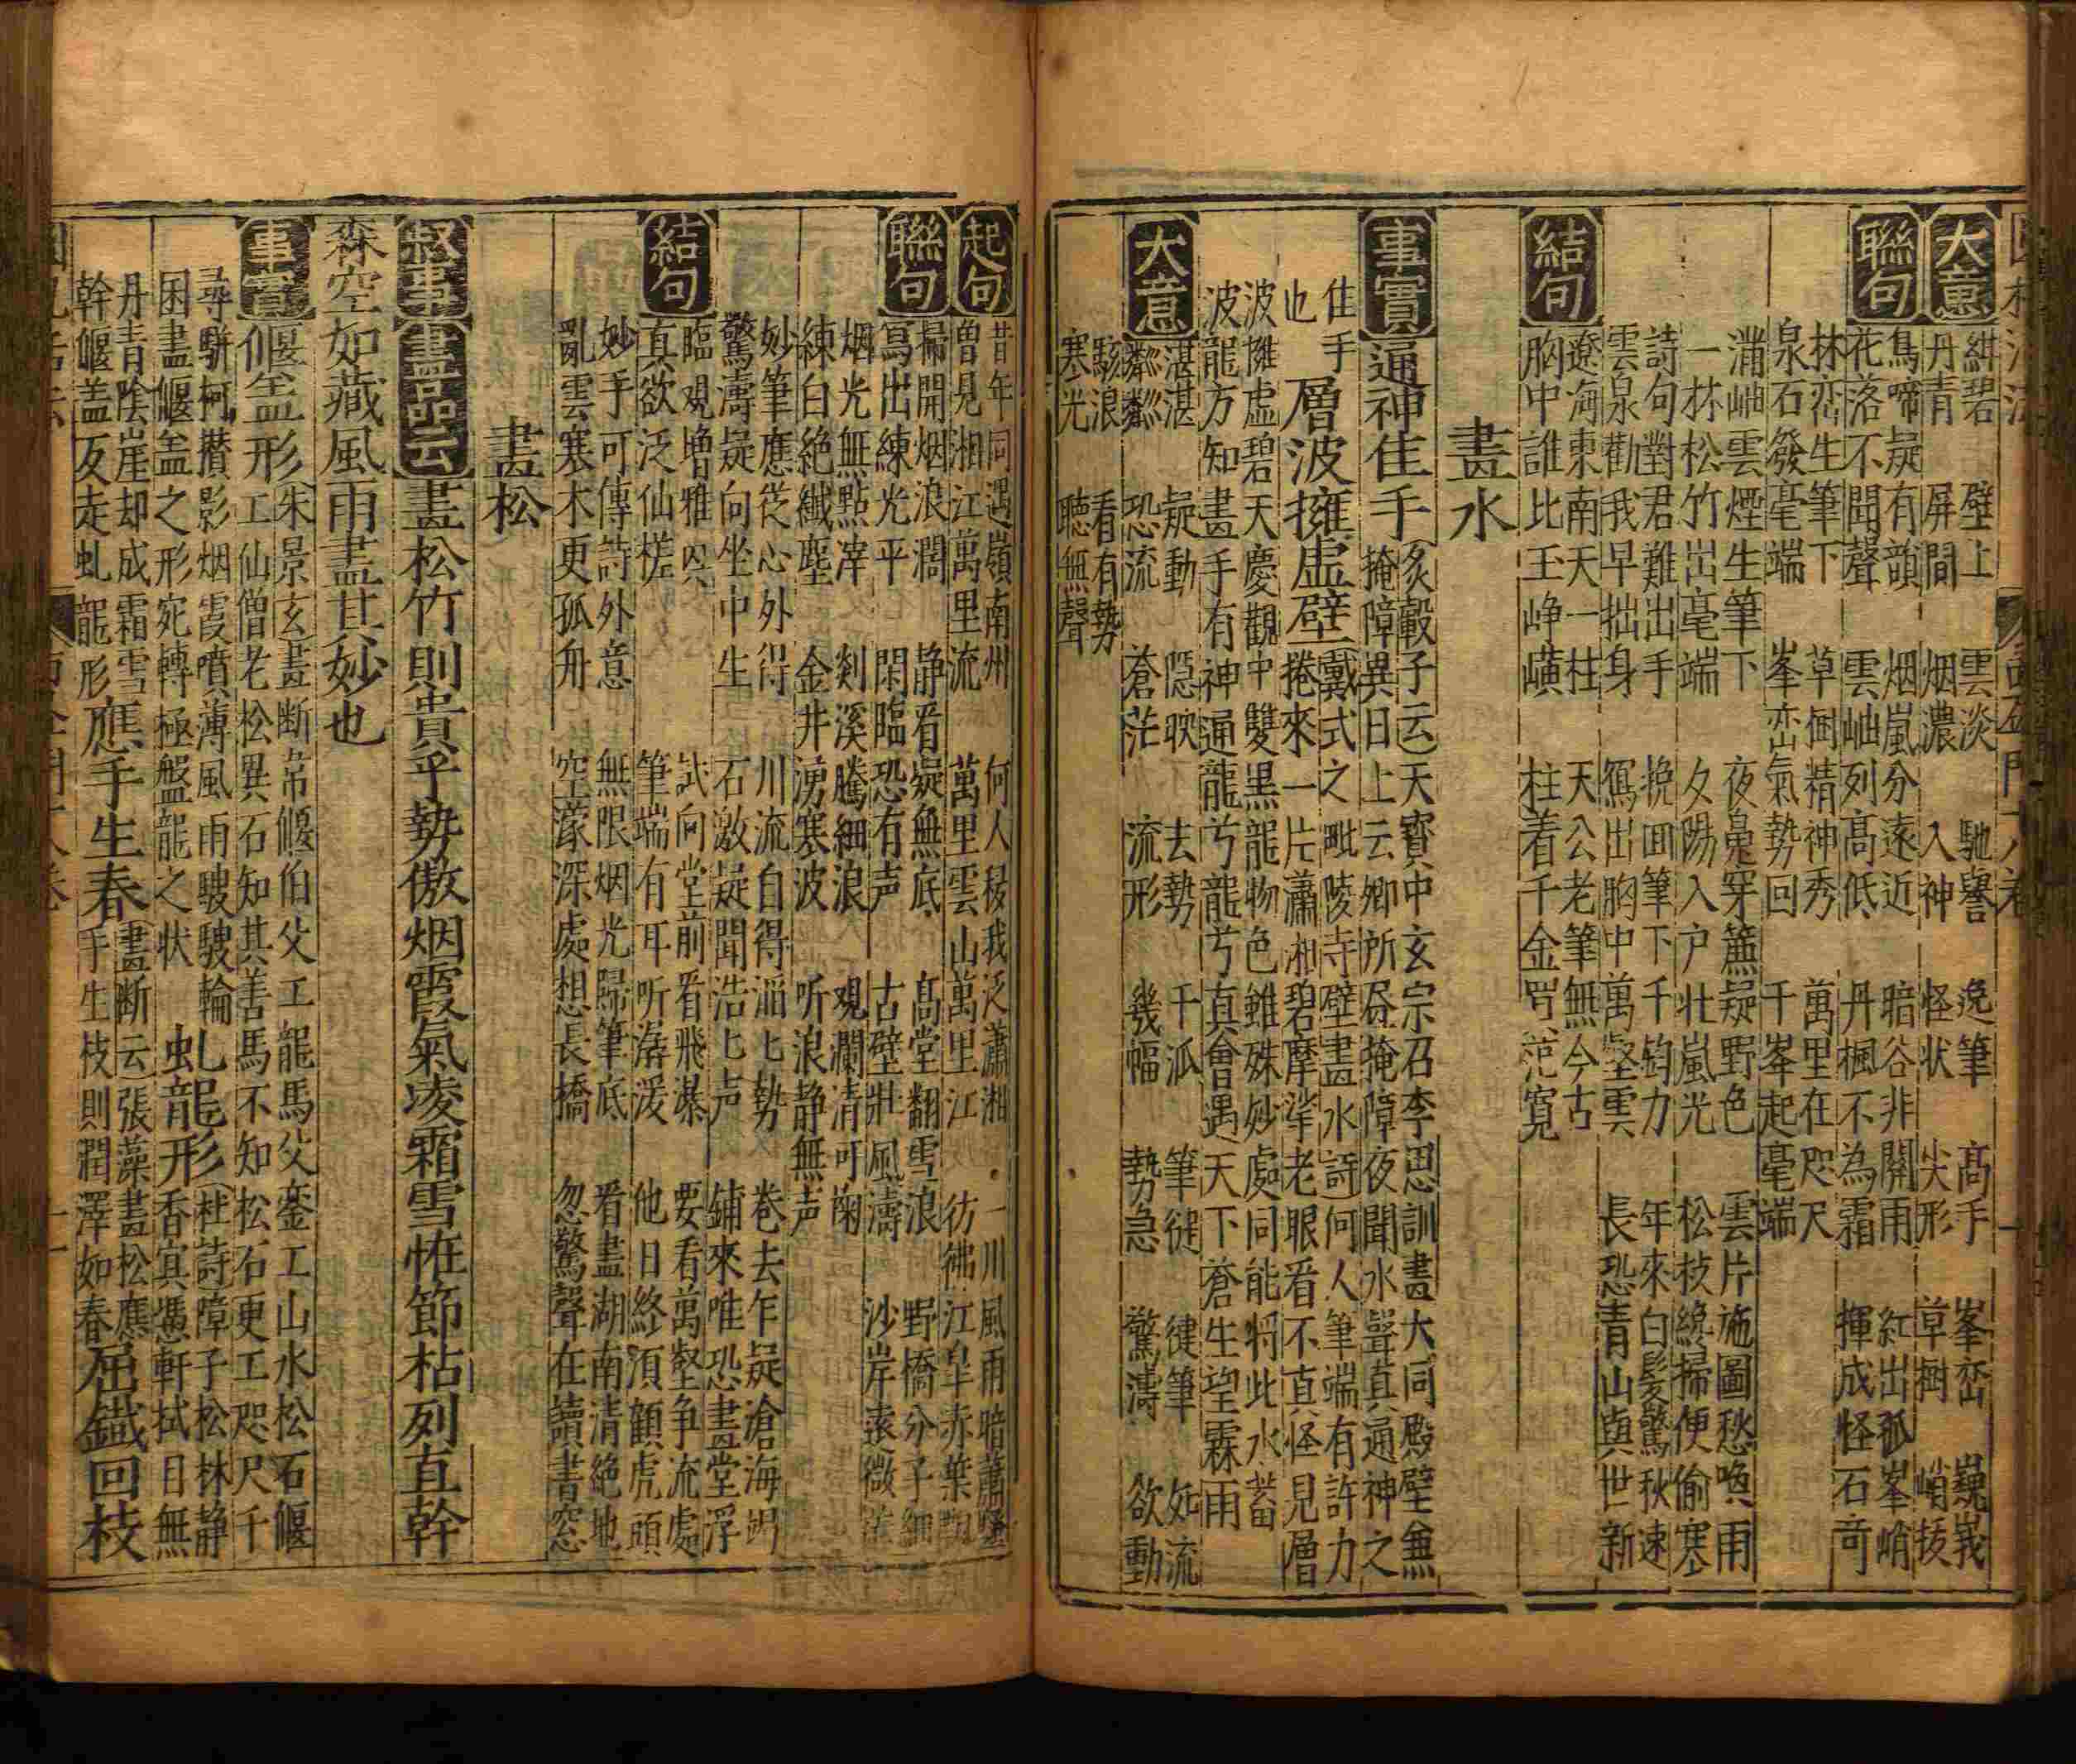 大意
紺碧 壁上 雲淡 馳譽 逸筆 高手 峯巒 巍峩
丹青 屏間 烟濃 入神 怪状 尖形 草樹 峭拔
聯句
鳥啼疑有韻 烟嵐分遠近 暗谷非關雨 紅出孤峯峭
花落不聞聲 雲岫列高低 丹楓不為霜 揮成怪石奇
林巒生筆下 草樹精神秀 萬里在咫尺
泉石發毫端 峯巒氣勢回 千峯起毫端
滿岫雲煙生筆下 夜鳧穿簾疑野色 雲片施圖愁喚雨
一林松竹出毫端 夕陽入户壮嵐光 松枝繞掃便偷塞
結句
詩句對君難出手 挽回筆下千鈞力 年來白髪驚秋速
雲泉勸我早拙身 寫出胸中萬壑雲 長恐青山與世新
遼海東南天一柱 天公老筆無今古
胸中誰比玉峥嶸 柱着千金買範寬
畫水
事實
逼神佳手
(炙轂子云)天寳中玄宗召李思訓畫大同殿壁兼
掩障異日上云卿所畫掩障夜聞水聲真通神之
佳手
也
層波擁虛壁
(戴式之毗陵寺壁畫水詩)何人筆端有許力
捲來一片瀟湘碧摩挲老眼看不真怪見層
波擁虛碧天慶觀中雙黒龍物色雖殊妙處同能將此水蓄
波龍方知畫手有神通龍兮龍兮真會遇天下蒼生望霖雨
大意
湛湛 疑動 隐映 去勢 千派 筆徤 徤筆 如流
粼粼 恐流 蒼茫 流形 幾幅 勢急 驚濤 欲動
駭浪 看有勢
寒光 聴無聲
起句
昔年同過嶺南州 何人發我泛瀟湘 一川風雨暗蕭騷
曽見湘江萬里流 萬里雲山萬里江 彷彿江皐赤葉飄
聯句
掃開烟浪濶 静看疑無底 髙堂翻雪浪 野橋分子細
寫出練光平 閑臨恐有声 古壁壯風濤 沙岸遠微茫
烟光無點滓 剡溪騰細浪 观瀾清可掬
練白絶纎塵 金井湧寒波 听浪静無声
妙筆應從心外得 川流自得滔匕勢 卷去乍疑滄海竭
驚濤疑向坐中生 石激疑聞浩匕声 鋪來唯恐畫堂浮
結句
臨观增雅興 試向堂前看飛瀑 要看萬壑争流處
真欲泛仙槎 筆端有耳听潺湲 他日終湏顧虎頭
妙手可傳詩外意 無限烟光歸筆底 看盡湖南清絶地
亂雲寒木更孤舟 空濛深處想長橋 忽驚聲在讀書窓
畫松
叙事
畫品云
畫松竹則貴乎勢傲烟霞氣凌霜雪恠節枯列直幹
森空如藏風雨盡其妙也
事實
偃盖形
(朱景玄畫断)韦偃伯父工龍馬父鑾工山水松石偃
工仙僧老松異石知其善馬不知松石更工咫尺千
尋駢柯攅影烟霞噴薄風雨颼颼輪
囷盡偃盖之形宛轉極盤龍之状
虬龍形
(杜詩)障子松林静
杳冥憑軒拭日無
丹青陰崖却成霜雪
幹偃盖反走虬龍形
應手生春
(畫断云)張藻畫松應
手生枝則潤澤如春
屈鐡回枝